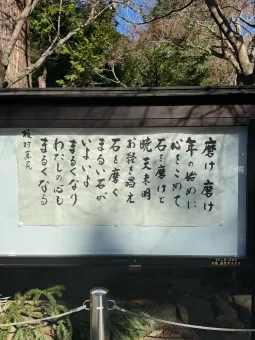 磨け 磨け
年の始めに
心をこめて
石を磨けと
暁天未明
お経を唱え
石を磨く
まるい石が
いよいよ
まるくなり
わたしの心も
まるくなる
坂村真民